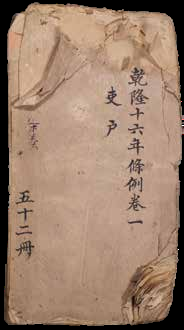 乾隆十六年條例卷一
吏戶
五十二冊